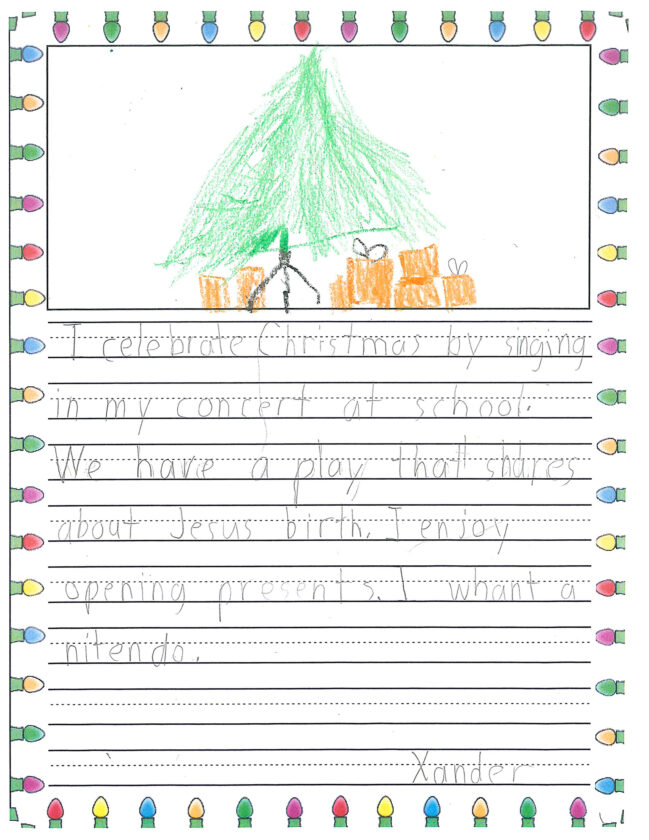 I celebrate Christmas by singing
in my concert at school.
We have a play that shares
about Jesus birth. I enjoy
opening presents. I whant a
nitendo.
Xander